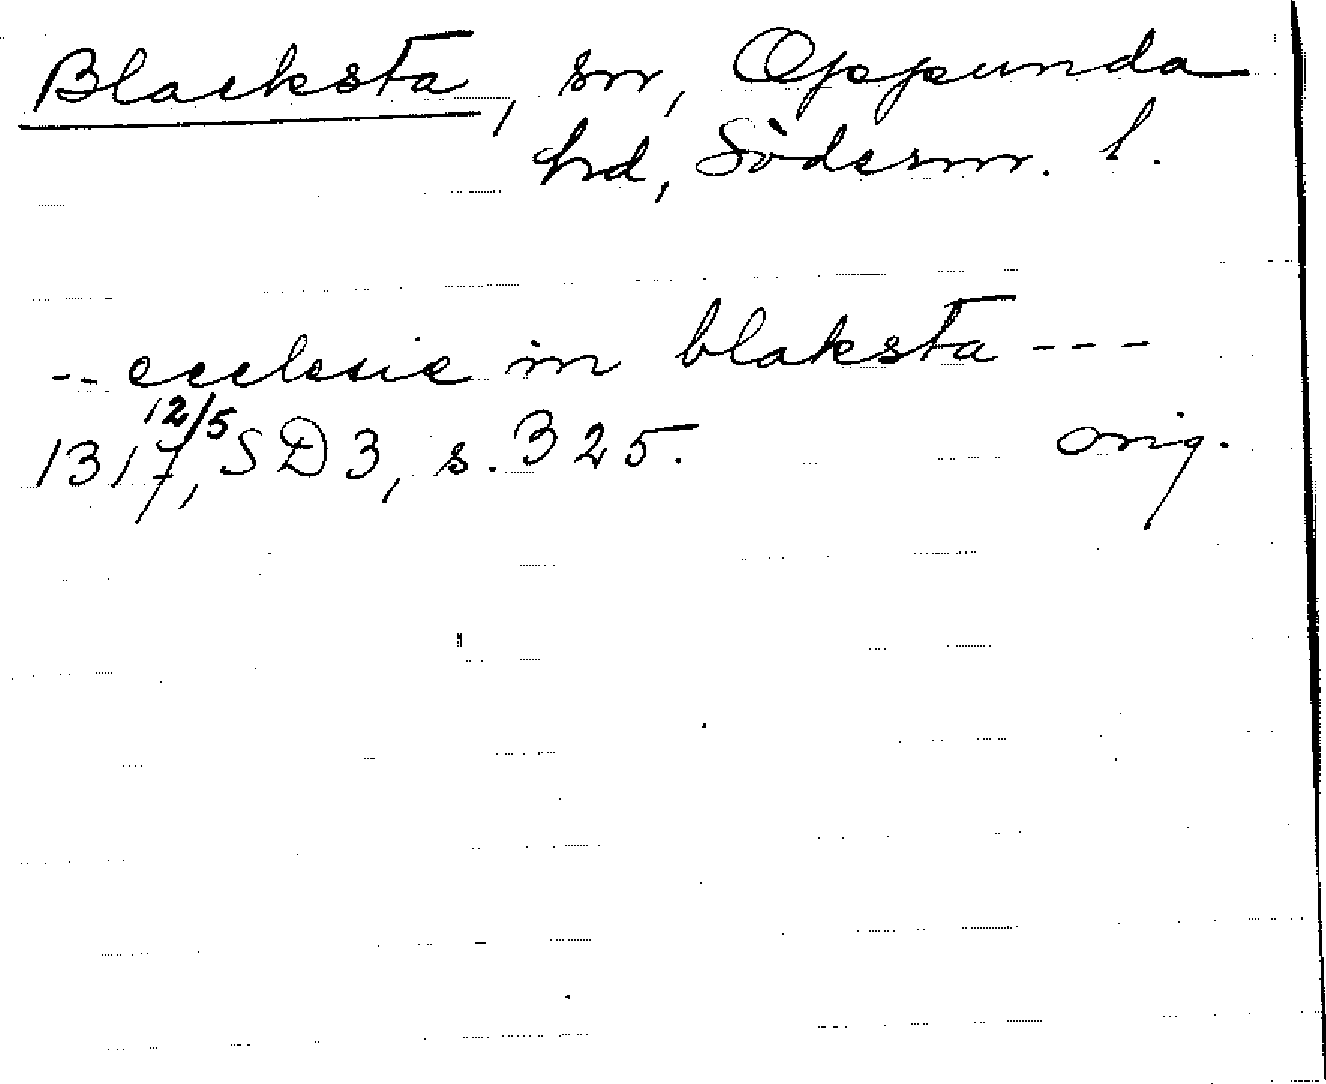 Blacksta, sn, Oppunda
hd, Söderm. l.
-- ecclesie in blaksta ---
1317 12/5, SD 3, s. 325. orig.